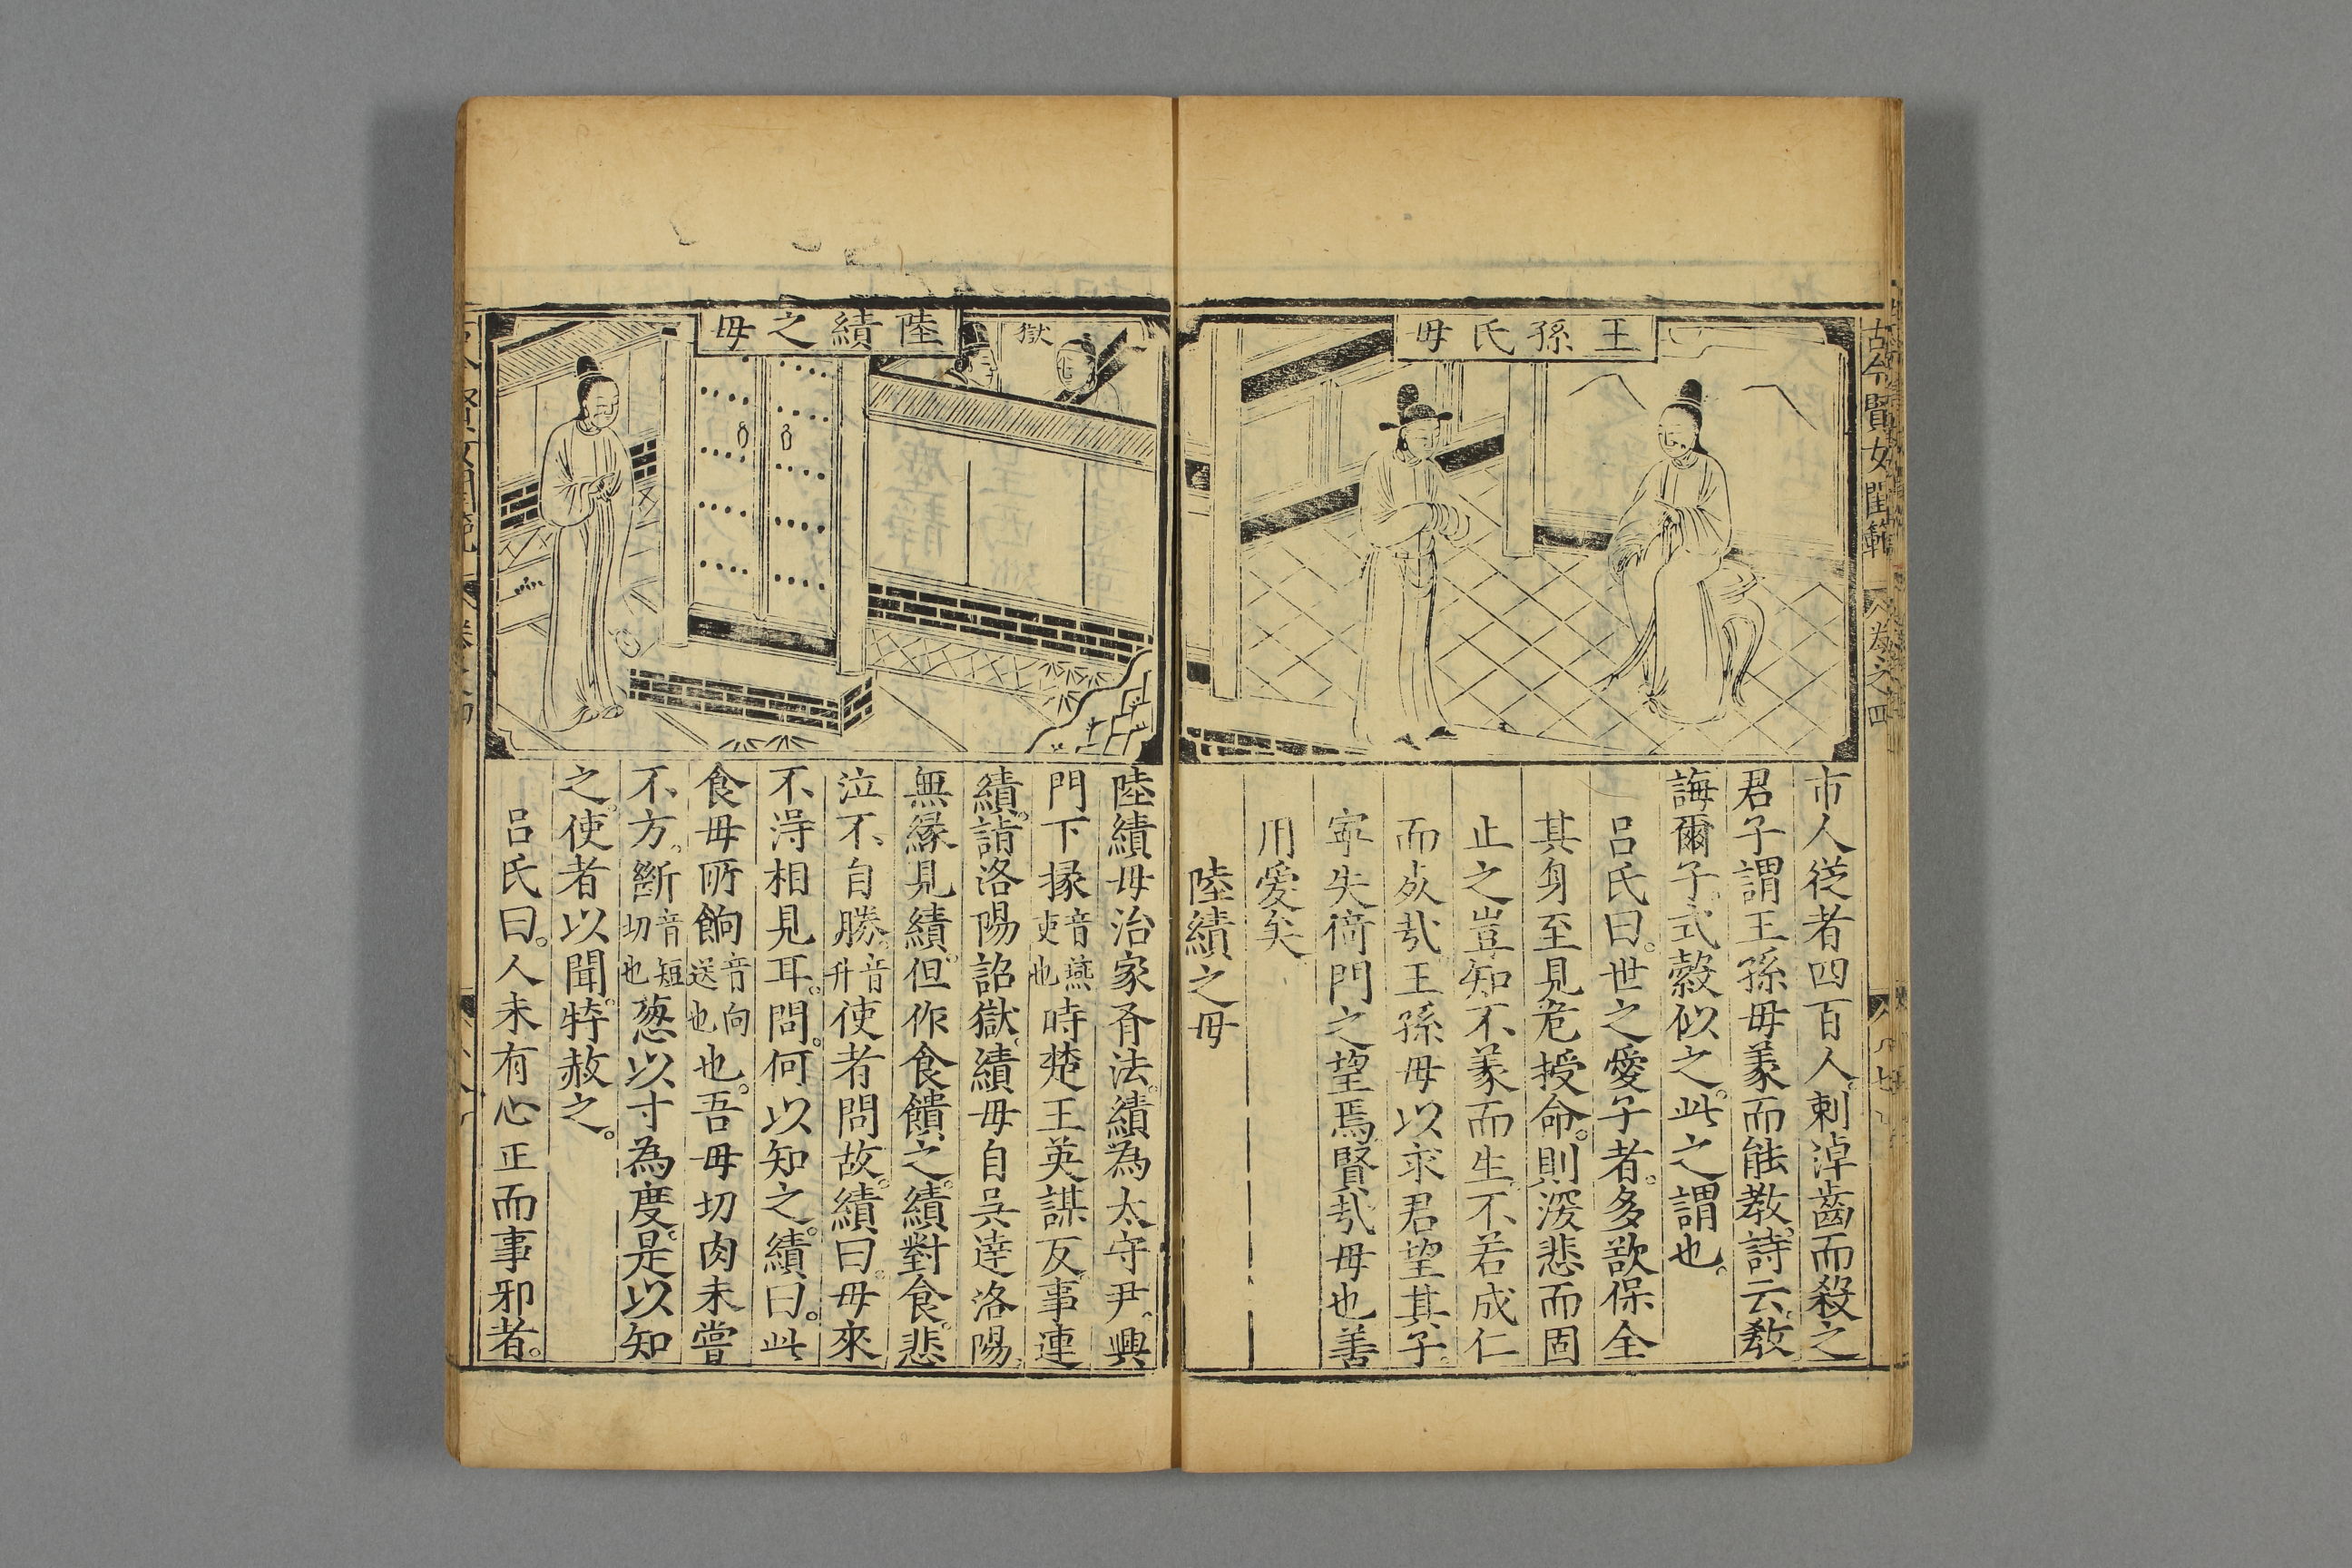 古今賢女閨範
卷之四
王孫氏母
市人從者四百人刺淖齒而殺之
君子謂王孫母義而能教詩云教
誨爾子式穀似之此之謂也
呂氏曰世之愛子者多欲保全
其身至見危授命則深悲而固
止之豈知不義而生不若成仁
而死哉王孫母以求君望其子
寧失倚門之望焉賢哉母也善
用愛矣
陸績之母
陸績之母
獄
陸績母治家有法績為太守尹興
門下掾音燕吏也時楚王英謀反事連
績詣洛陽詔獄績母自吳達洛陽
無緣見績但作食饋之績對食悲
泣不自勝音升使者問故績曰母來
不得相見耳問何以知之績曰此
食母所餉音向送也也吾母切肉未嘗
不方斷音短切也葱以寸為度是以知
之使者以聞特赦之
呂氏曰人未有心正而事邪者